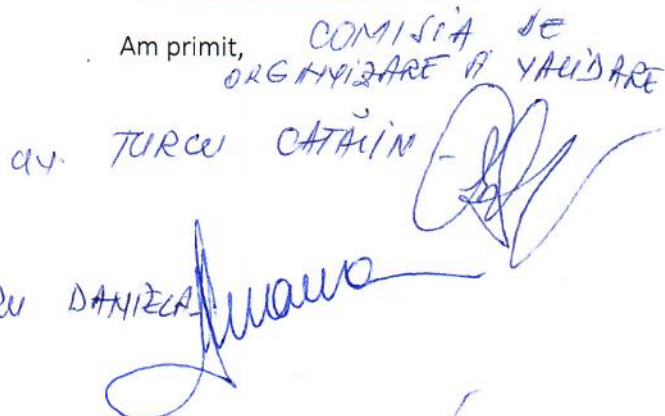 Am primit, COMISIA DE
ORGANIZARE ȘI VALIDARE
av. TURCU CĂTĂLIN
DANIELA